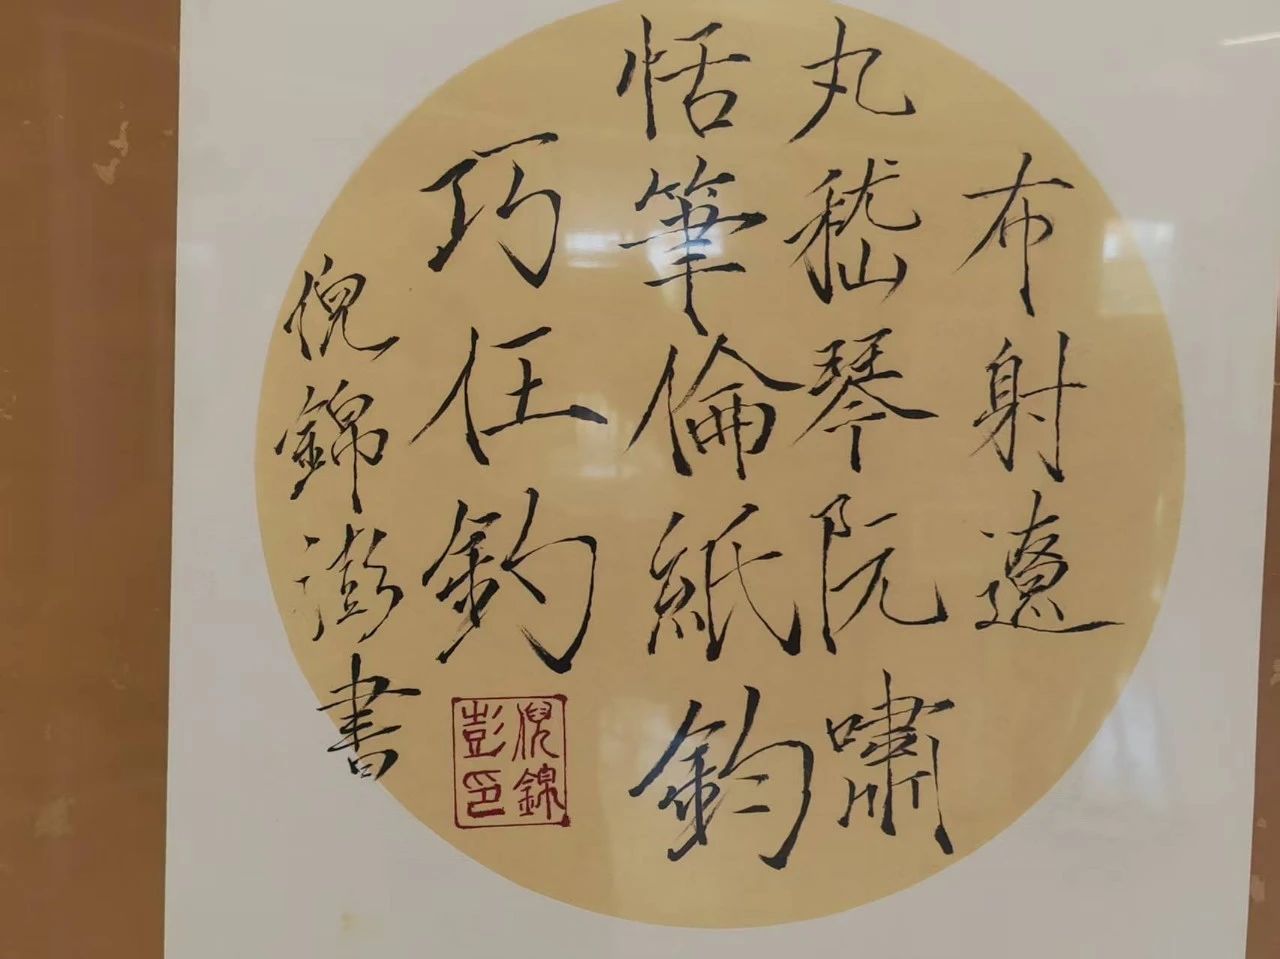 布射遼
丸嵇琴阮嘯
恬筆倫紙鈞
巧任釣
倪錦澎書
倪錦
彭印